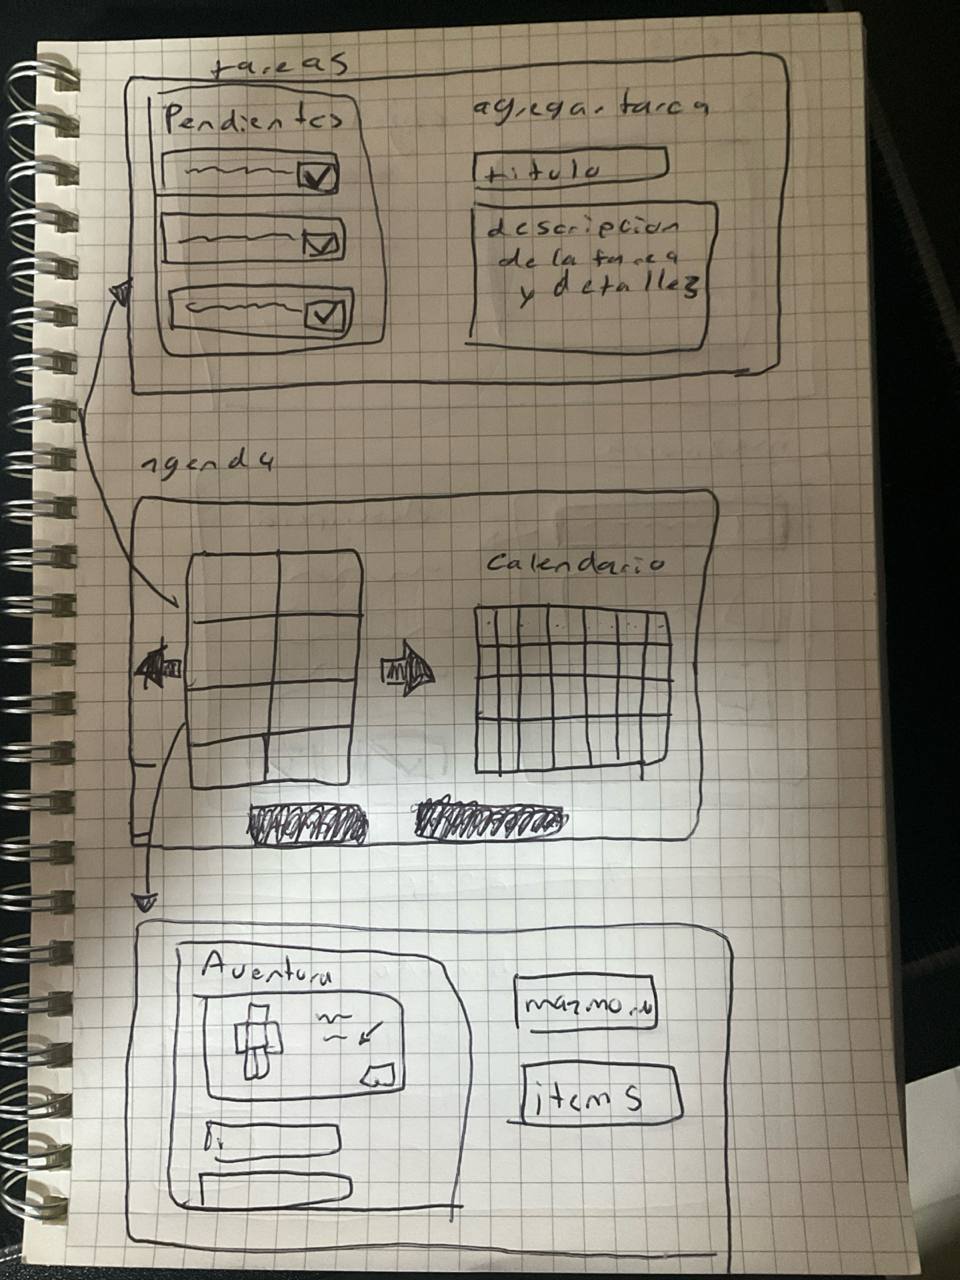 tareas
Pendientes
agregar tarea
titulo
descripcion
de la tarea
y detalles
agenda
Calendario
Aventura
items